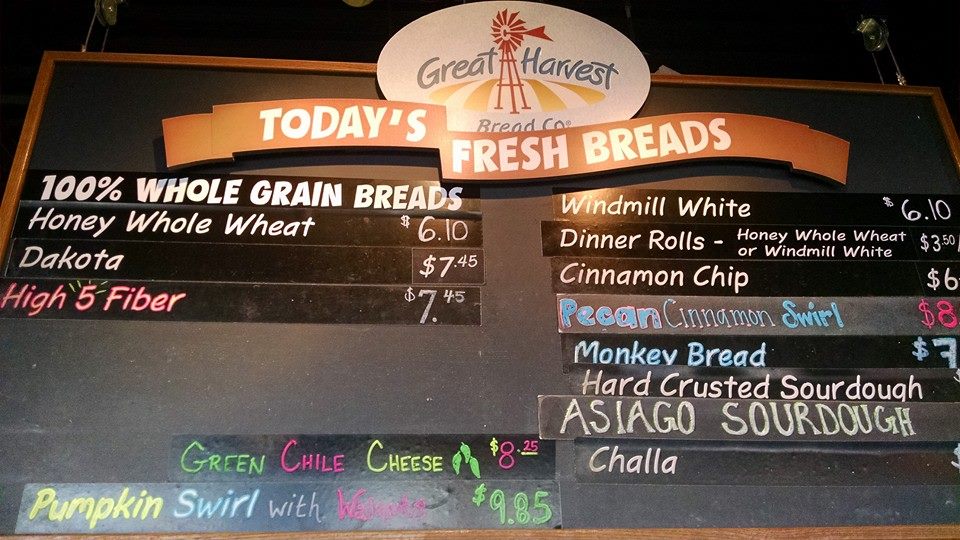 Great Harvest
Bread Co®
TODAY'S
FRESH BREADS
100% WHOLE GRAIN BREADS
Honey Whole Wheat $6.10
Dakota $7.45
High 5 Fiber $7.45
GREEN CHILE CHEESE $8.25
Pumpkin Swirl with Walnuts $9.85
Windmill White $6.10
Dinner Rolls - Honey Whole Wheat $3.50/
or Windmill White
Cinnamon Chip $6
Pecan Cinnamon Swirl $8
Monkey Bread $7
Hard Crusted Sourdough
ASIAGO SOURDOUGH
Challa $